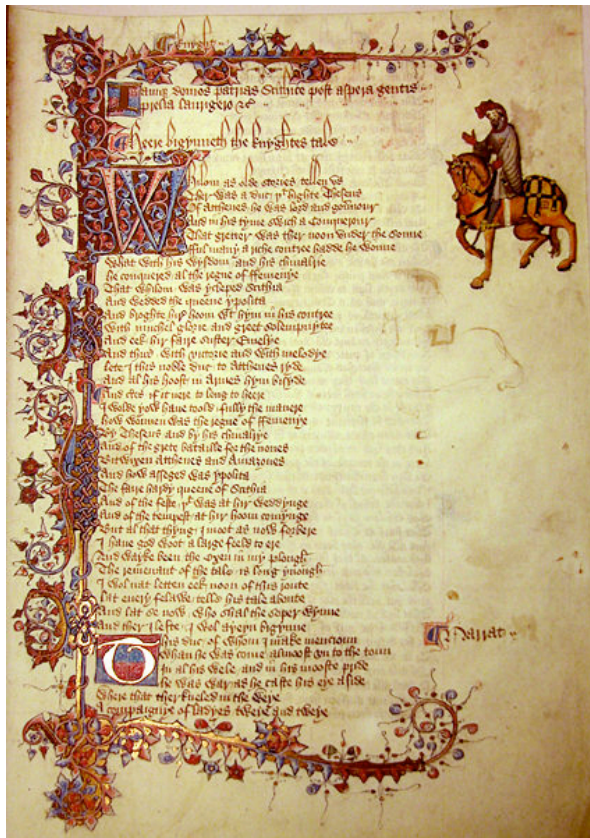 Knyght
Iamque domos patrias Scithice post aspera gentis
prelia laurigero &c
Heere bigynneth the knyghtes tale
Whilom as olde stories tellen vs
Ther was a duc þt highte Theseus
Of Atthenes he was lord and gouernour
And in his tyme swich a Conquerour
That gretter was ther noon vnder the sonne
fful many a riche contree hadde he wonne
What with his wysdom and his chiualrie
he conquered al the regne of ffemenye
That whilom was ycleped Scithia
And wedded the queene ypolita
And broghte hire hoom wt hym in his contree
With muchel glorie and greet solempnytee
And eek hir faire suster Emelye
And thus with victorie and with melodye
lete I this noble duc to Atthenes ryde
And al his hoost in Armes hym bisyde
And certes if it nere to long to heere
I wolde yow haue toold fully the manere
how wonnen was the regne of ffemenye
By Theseus and by his chiualrye
And of the grete bataille for the nones
Bitwixen Atthenes and Amazones
And how asseged was ypolita
The faire hardy queene of Scithia
And of the feste þt was at hir weddynge
And of the tempest at hir hoom comynge
But al that thyng I moot as now forbere
I haue god woot a large feeld to ere
And wayke been the Oxen in my plough
The remenant of the tale is long ynough
I wol nat letten eek noon of this route
lat euery felawe telle his tale aboute
And lat se now who shal the soper wynne
And ther I lefte I wol ayeyn bigynne
This duc of whom I make mencioun
Whan he was come almoost vn to the toun
In al his wele and in his mooste pride
he was war as he caste his eye aside
Where that ther kneled in the weye
A compaignye of ladyes tweye and tweye
Narrat